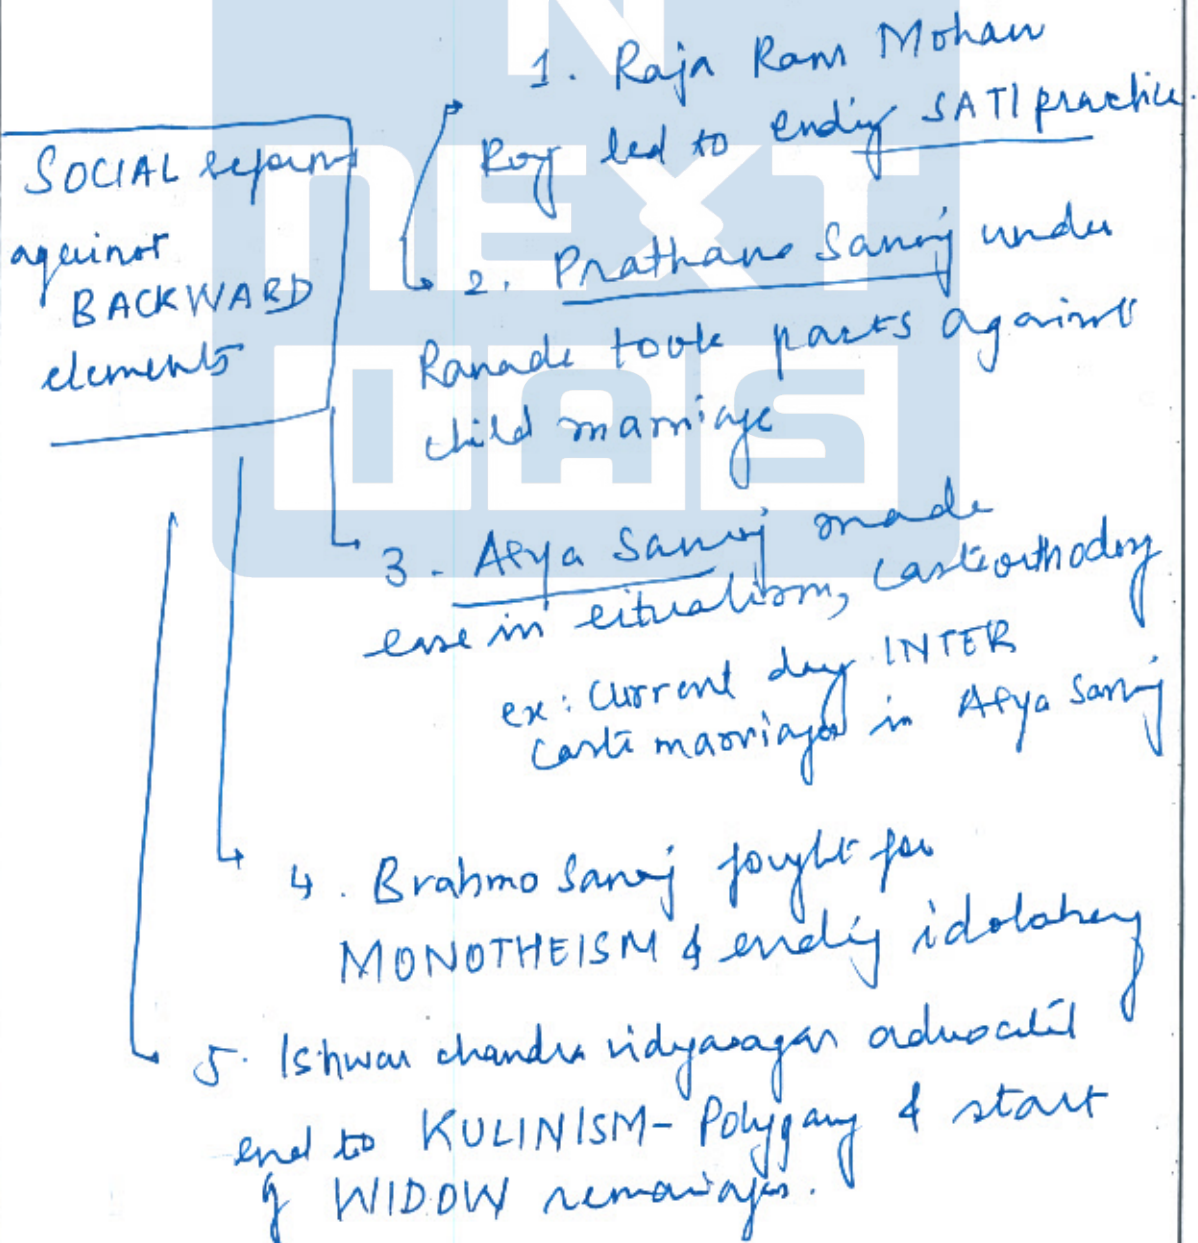 SOCIAL reforms
against
BACKWARD
elements
1. Raja Ram Mohan
Roy led to ending SATI practice.
2. Prathana Samaj under
Ranade took parts against
child marriage
3. Arya Samaj made
ease in ritualism, caste orthodoxy
ex: Current day INTER
caste marriages in Arya Samaj
4. Brahmo Samaj fought for
MONOTHEISM & ending idolatery
5. Ishwar chandra vidyasagar advocated
end to KULINISM - Polygamy & start
of WIDOW remarriages.
NEXT
IAS